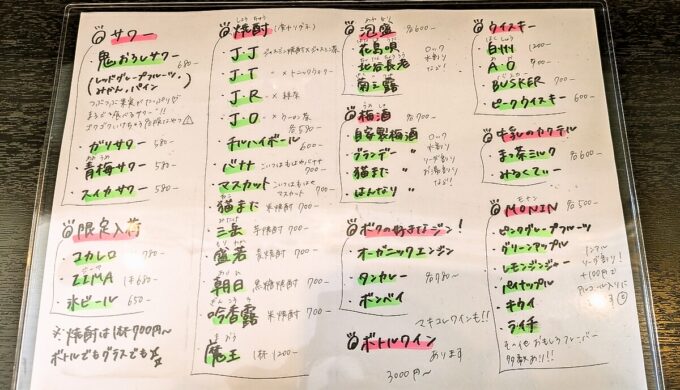 サワー
鬼おろしサワー 680-
(レッドグレープフルーツ,
みかん,パイン)
ガリサワー 580-
青梅サワー 580-
スイカサワー 580-
限定入荷
コカレロ 780-
ZIMA 1本680-
氷ビール 650-
※焼酎は1杯700円~
ボトルでもグラスでも
焼酎
J.J ジャスミン焼酎×ジャスミン茶
J.T 〃 ×トニックウォーター
J.R 〃 ×緑茶
J.O 〃 ×ウーロン茶
各580-
チルハイボール 600-
バナナ こいつはもはやバナナ 700-
マスカット こいつはもはやマスカット 700-
猫またぎ 米焼酎 700-
三岳 芋焼酎 700-
朝日 黒糖焼酎 700-
吟香露 米焼酎 700-
魔王 1杯1200-
泡盛 各600-
花島唄 ロック
北谷長老 水割り
菊之露 など!
梅酒
自家製梅酒 ロック
ブランデー 〃 水割り
猫また 〃 ソーダ割り
はんなり 〃 お湯割り
など!! 
ボクの好きなジン!
オーガニックエンジン
タンカレー 各780~
ボンベイ
マキコレワインも!!
ボトルワイン あります
3000円~
ウイスキー
白州 1200-
A.O 900-
BUSKER 700-
ピークウイスキー 600-
牛乳のカクテル
まっ茶ミルク 各600-
みるくてぃー
MONIN 各500-
ピンクグレープフルーツ
グリーンアップル
レモンジンジャー
パイナップル
キウイ
ライチ
ノンアル
ソーダ割り!
+100円で
アルコール入りに
その他おもしろフレーバー
多数あり!!